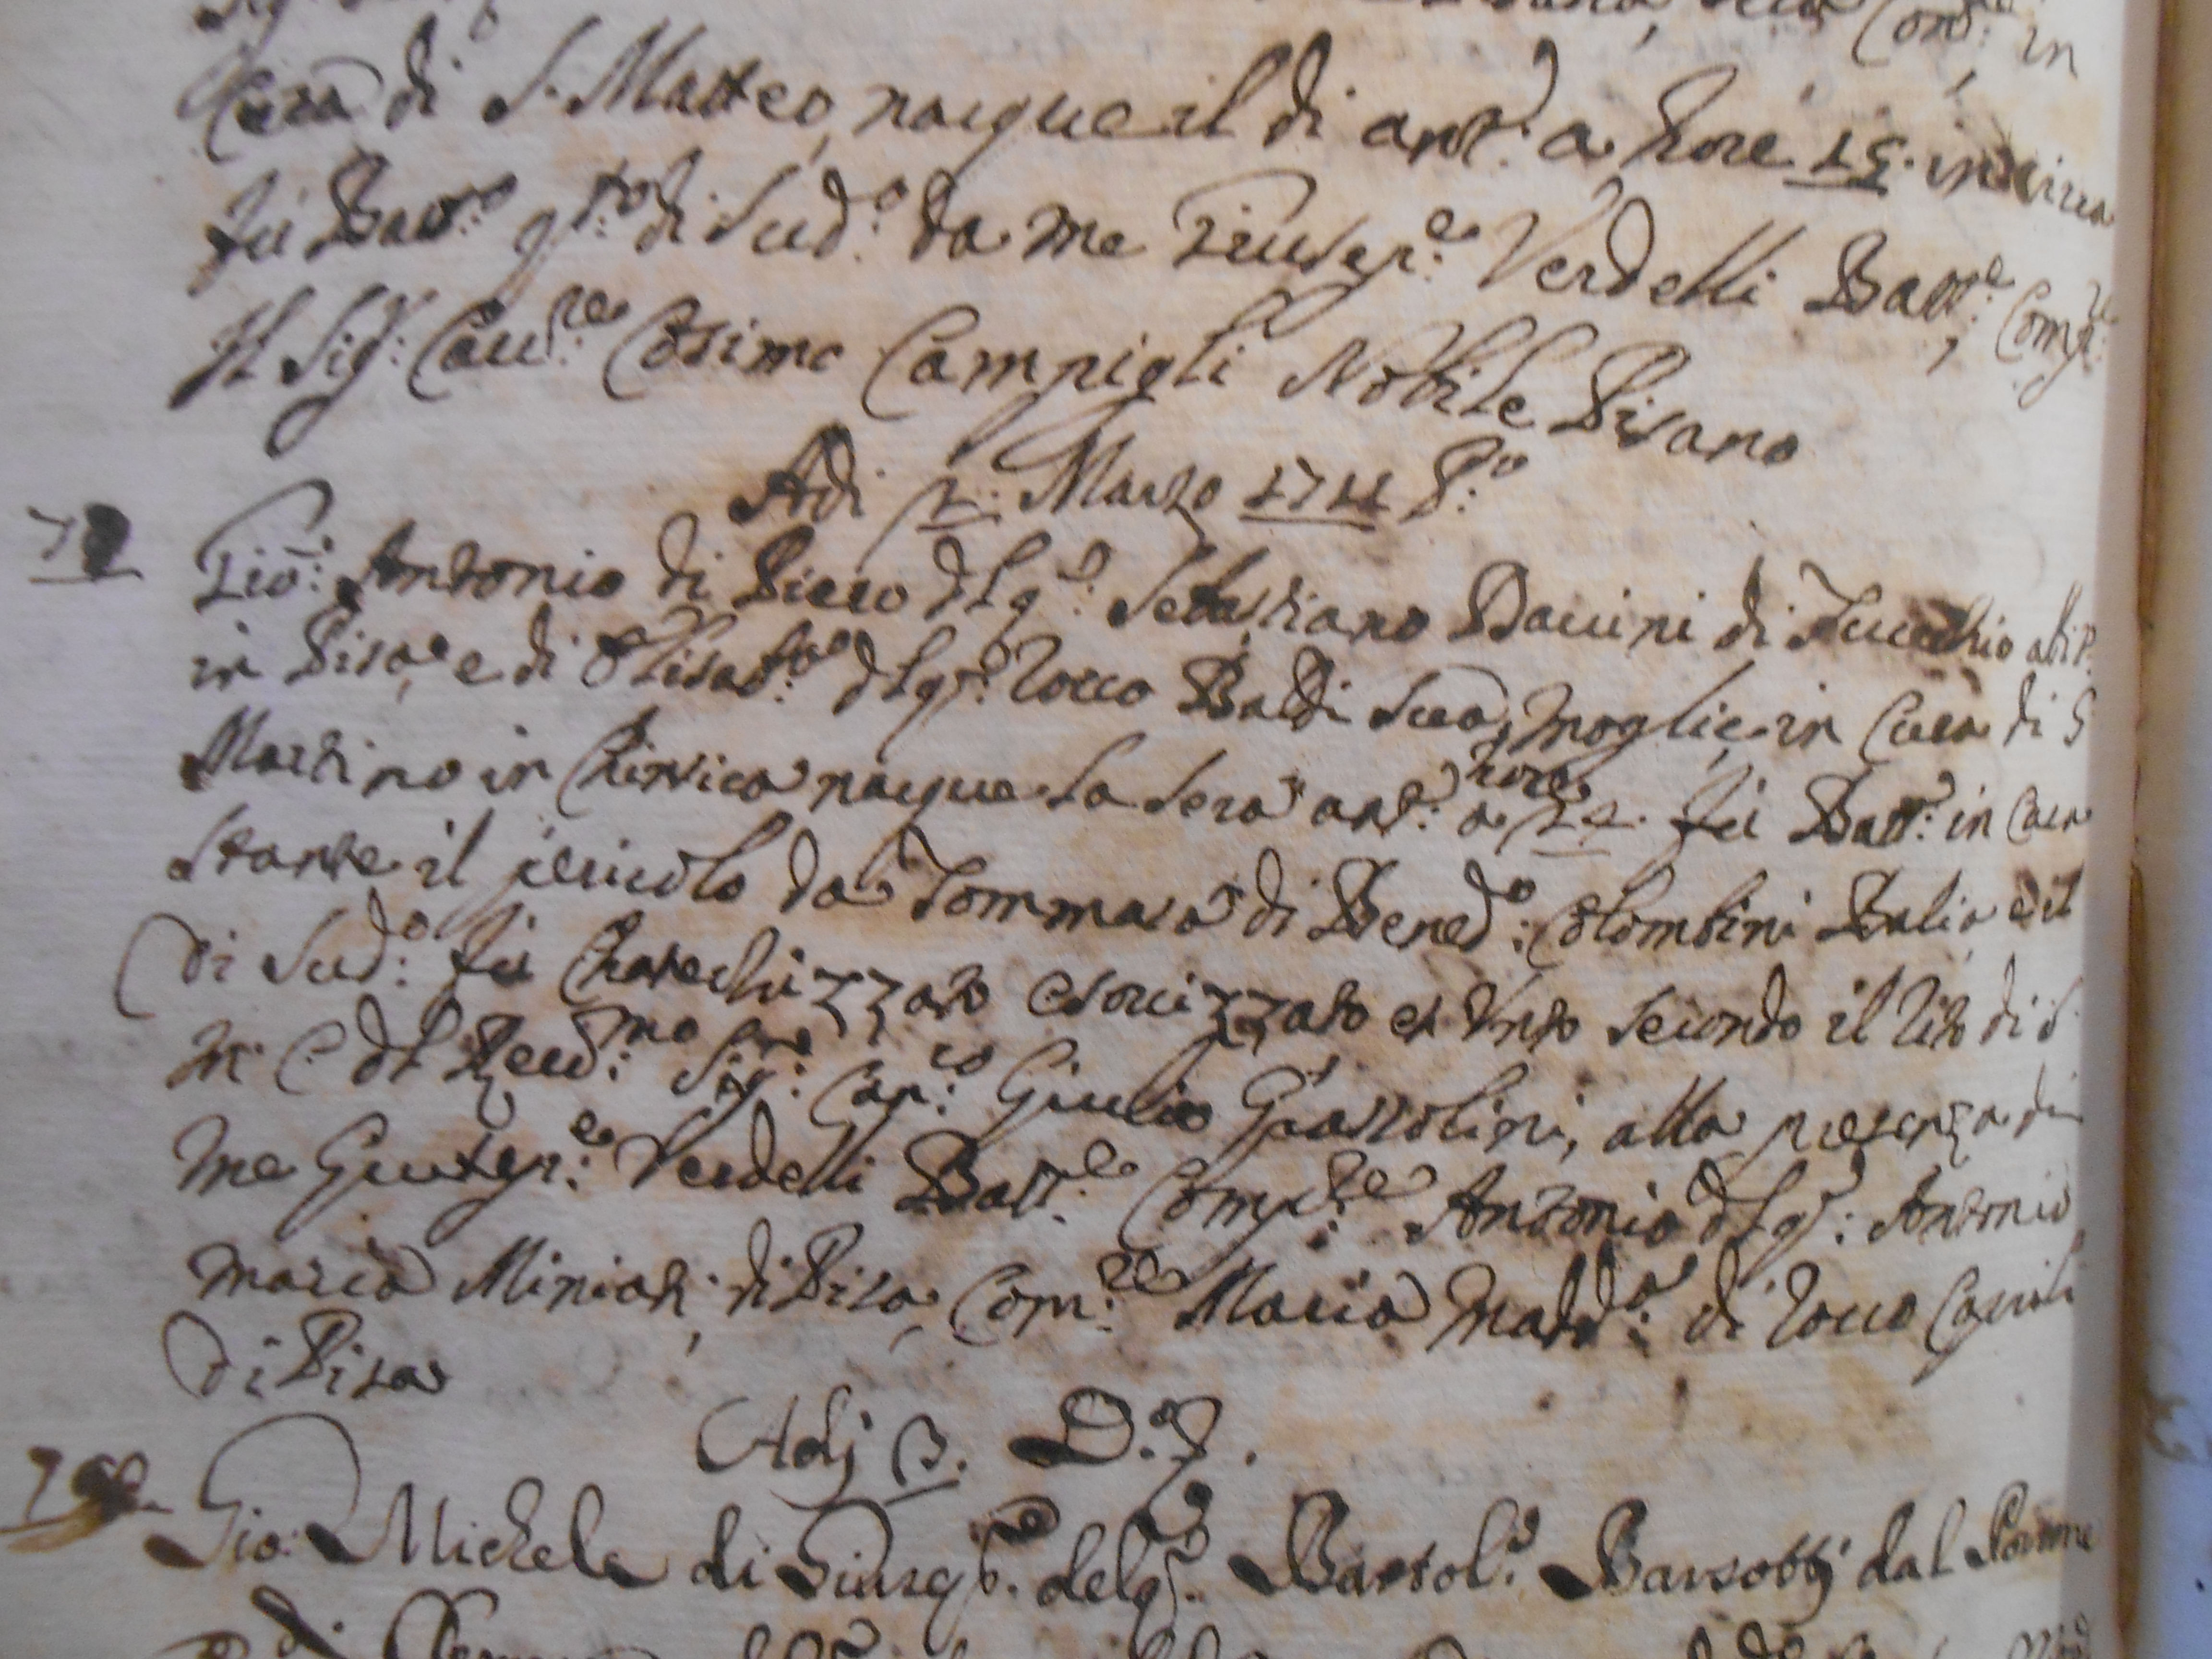 Cura di S. Matteo, nacque il di ant.e a hore 15. in circa
fù Batt.o q.to di sud.o da me Giusep.e Verdelli Batt.e, Comp.re
Il Sig.r Cau.re Cosimo Campigli Nobile Pisano
Adi 2. Marzo 1711 P.o
Gio: Antonio di Piero dl q.m Sebastiano Bacini di Fucechio abit.
in Pisa, e di Elisab.a dl q.m Rocco Baldi sua moglie in Cura di S
Martino in Chinsica nacque la sera ant.e a hore 24. fù Batt.o in casa
stante il pericolo da Tommasa di Bened.o Colombini Balia e il
di sud.o fù Chatechizzato esorcizzato et Unto secondo il rito di S.
M. C. dl Reu.mo Sig.re Cap.co Giulio Grassolini, alla presenza di
me Giusep.e Verdelli Batt.e Comp.re Antonio dl q.m Antonio
Maria Miniati di Pisa, Com.re Maria Madd.a di Rocco
di Pisa
Adj 3. D.o
Gio: Michele di Giusep.e del q.m Bartol.o Barsottj dal